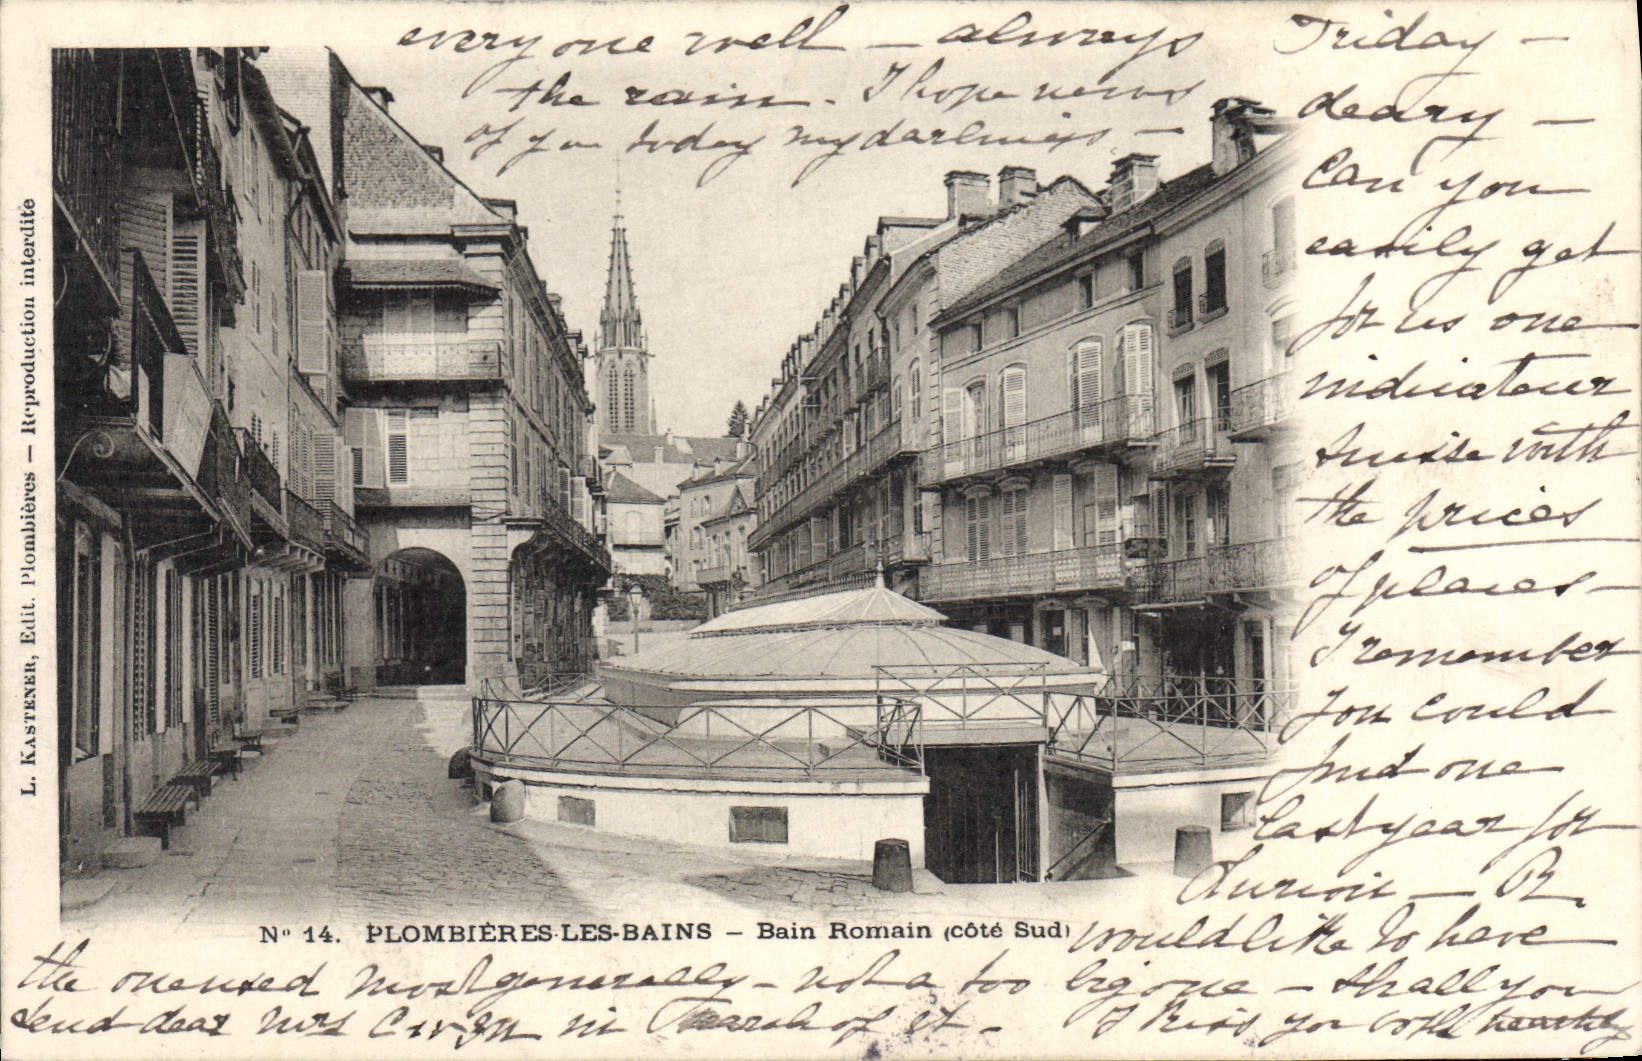 Friday —
deary —
Can you
easily get
for us one
indicateur
suisse with
the prices
of places —
I remember
you could
find one
last year for
— R.
would like to have
the one used most generally — not a too big one — shall you
send dear Mrs in search of it — I kiss you both heartily
every one well — always
the rain. I hope news
of you today my darlings —
L. KASTENER, Edit. Plombières — Reproduction interdite
Nº 14. PLOMBIÈRES-LES-BAINS — Bain Romain (côté Sud)